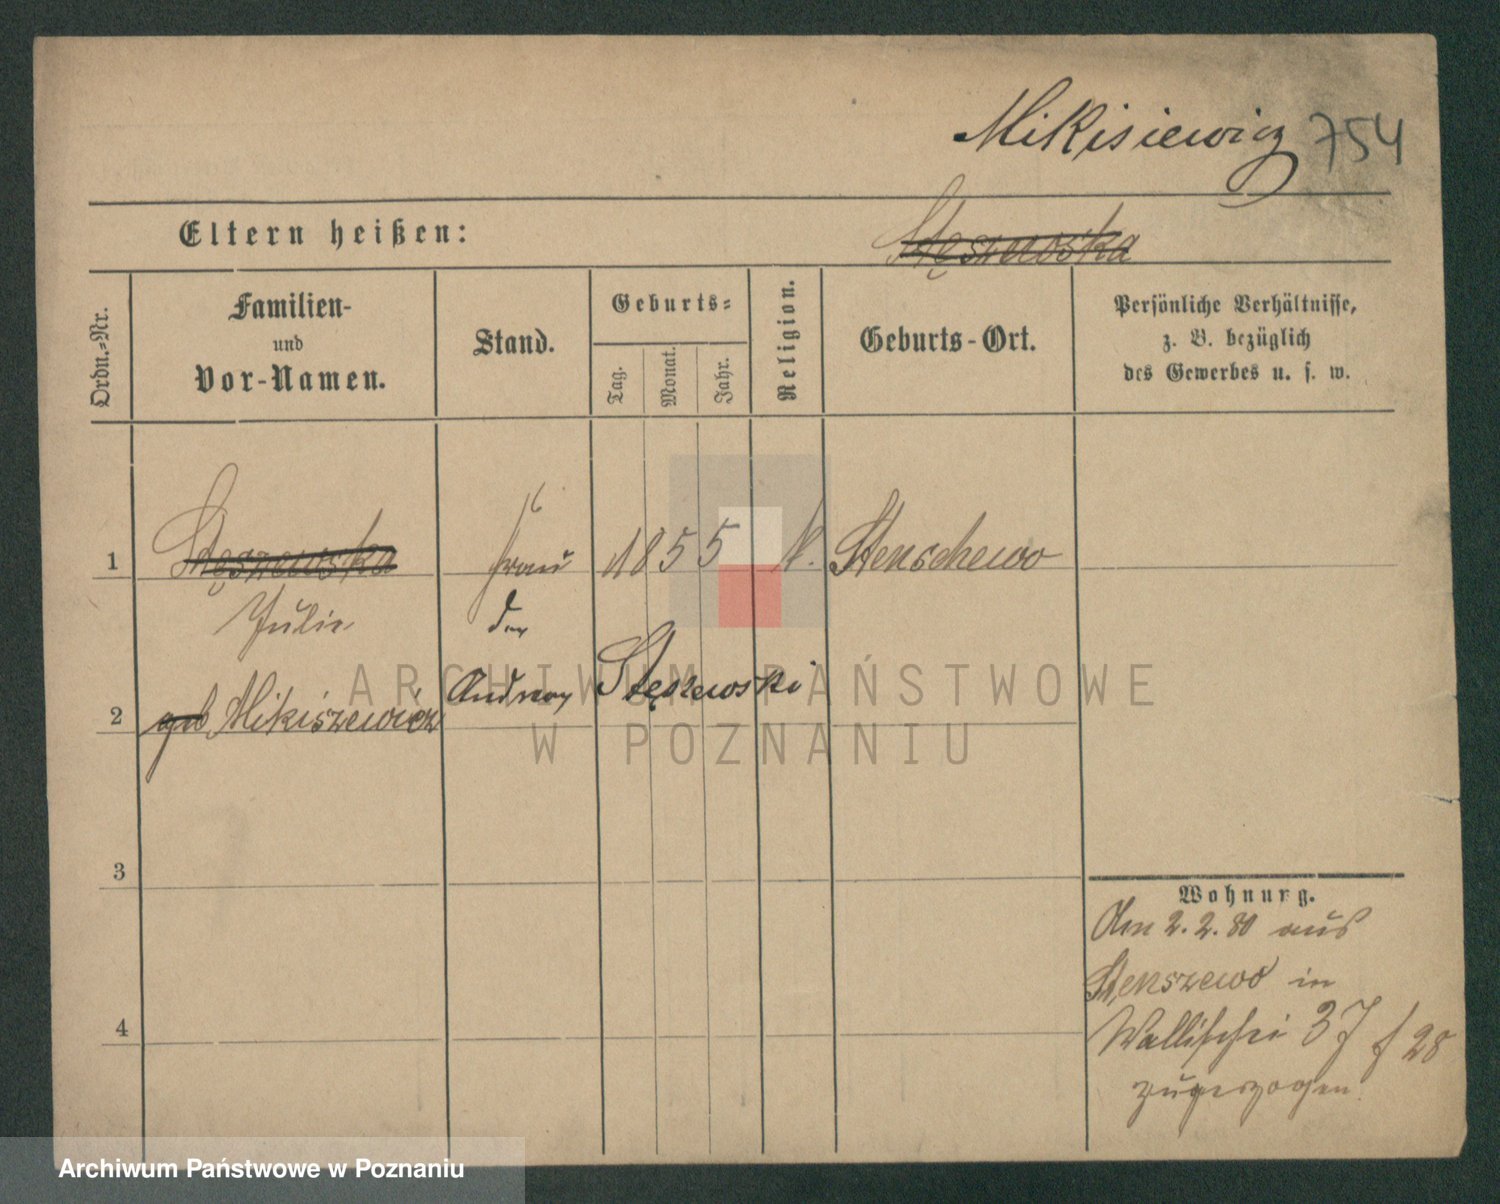 Mikisiewicz 754
Eltern heißen:
Stęszewska
Ordn.-Nr.
Familien-
und
Vor-Namen.
Stand.
Geburts-
Tag.
Monat.
Jahr.
Religion.
Geburts-Ort.
Persönliche Verhältnisse,
z. B. bezüglich
des Gewerbes u. s. w.
1 Stęszewska Frau 1855 k. Stenschewo
Julie der
2 geb Mikiszewicz Andreas Stęszewski
3
4
Wohnung.
Am 2. 2. 80 aus
Stenszewo in
Wallischei 37 f 28
zugezogen
ARCHIWUM PAŃSTWOWE
W POZNANIU
Archiwum Państwowe w Poznaniu